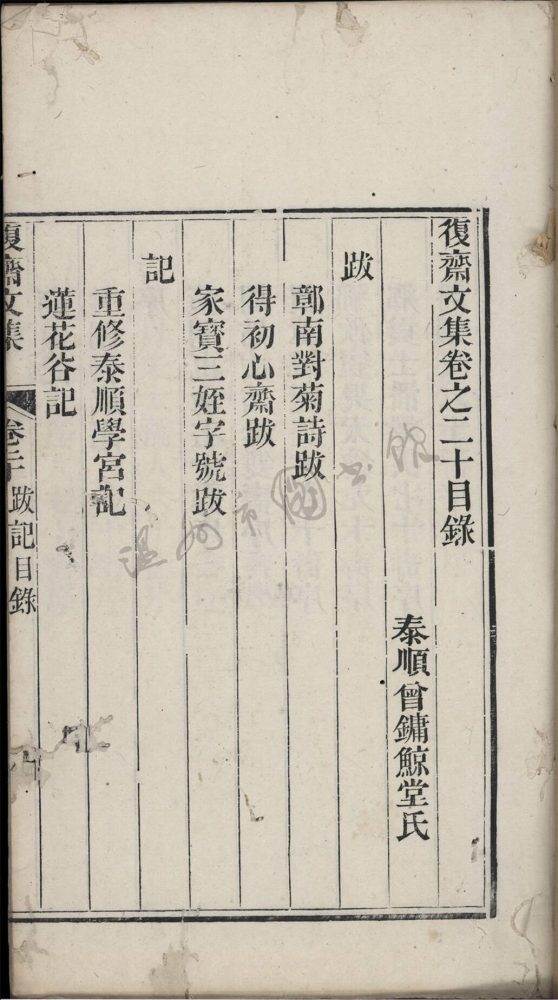 復齋文集卷之二十目錄
泰順曾鏞鯨堂氏
跋
鄣南對菊詩跋
得初心齋跋
家寶三姪字號跋
記
重修泰順學宮記
蓮花谷記
復齋文集
卷二十
跋記目錄
溫州市圖書館